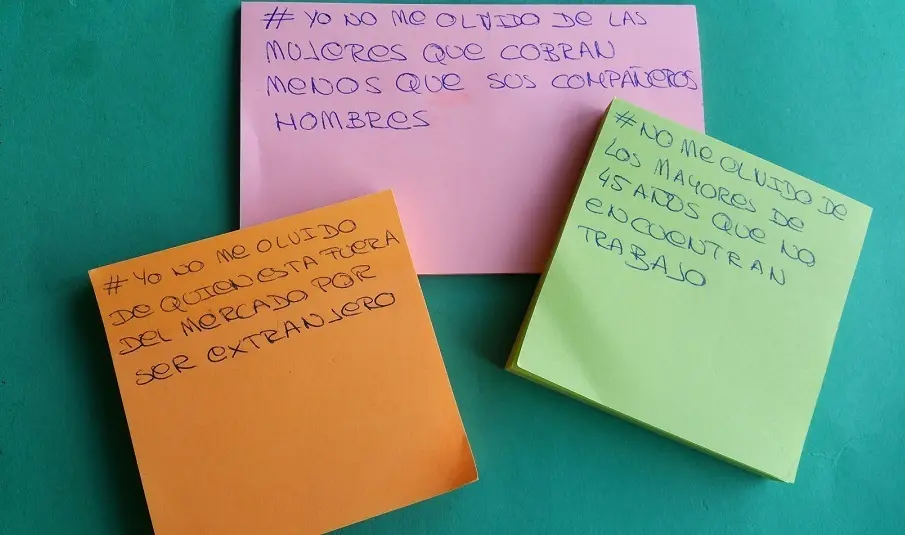 # YO NO ME OLVIDO DE LAS
MUJERES QUE COBRAN
MENOS QUE SUS COMPAÑEROS
HOMBRES
# YO NO ME OLVIDO
DE QUIEN ESTA FUERA
DEL MERCADO POR
SER EXTRANJERO
#NO ME OLVIDO DE
LOS MAYORES DE
45 AÑOS QUE NO
ENCUENTRAN
TRABAJO